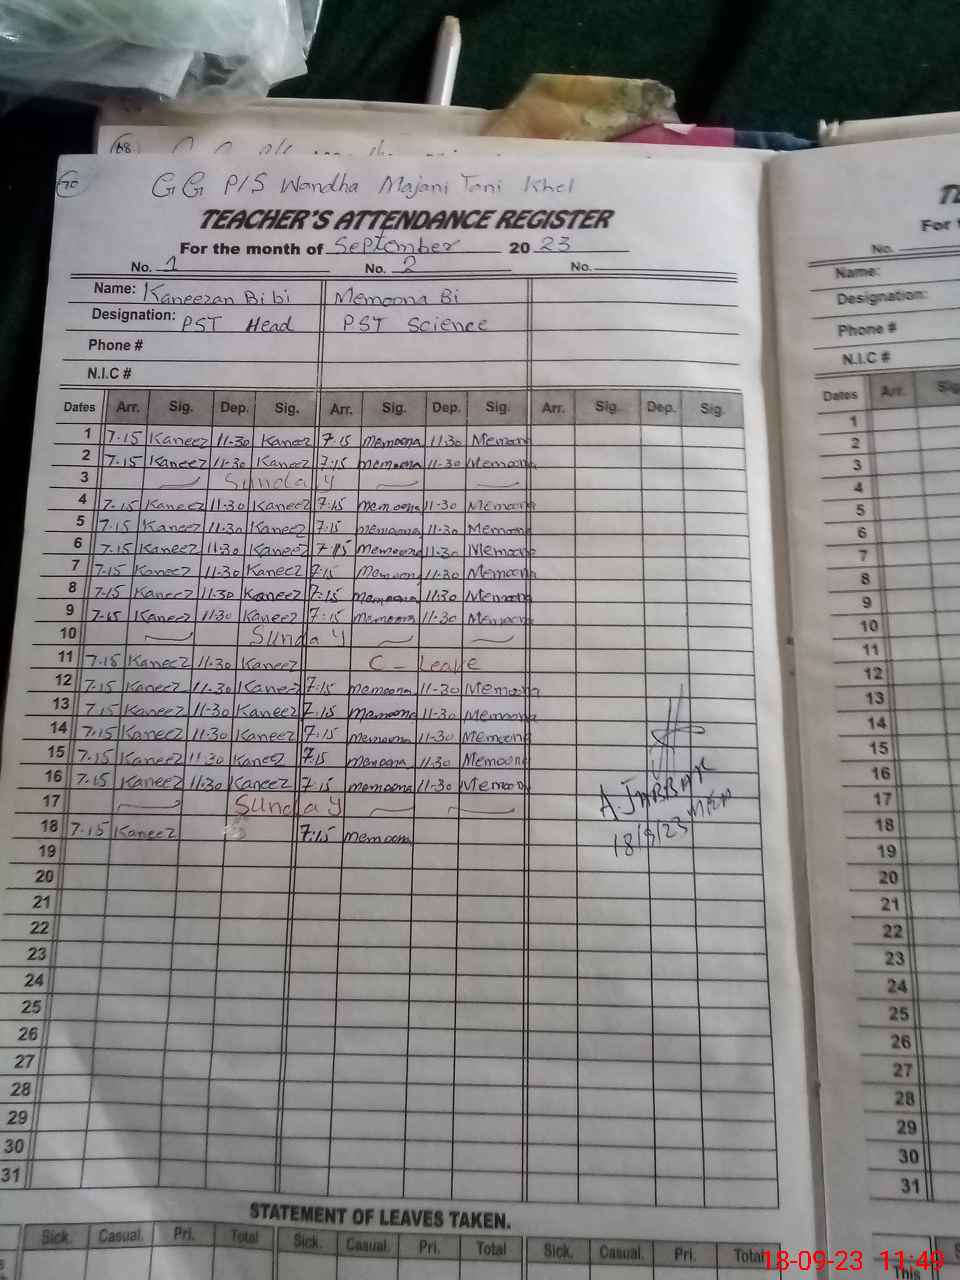 70
GG P/S Wandha Majani Tani Khel
TEACHER'S ATTENDANCE REGISTER
For the month of September 2023
No. 1 No. 2 No.
Name: Kaneezan Bibi Memoona Bi
Designation: PST Head PST Science
Phone #
N.I.C #
Dates Arr. Sig. Dep. Sig. Arr. Sig. Dep. Sig. Arr. Sig. Dep. Sig.
1 7.15 Kaneez 11-30 Kaneez 7:15 Memoona 11-30 Memoona
2 7.15 Kaneez 11-30 Kaneez 7:15 Memoona 11-30 Memoona
3 Sunday
4 7.15 Kaneez 11.30 Kaneez 7:15 Memoona 11-30 Memoona
5 7.15 Kaneez 11.30 Kaneez 7:15 Memoona 11-30 Memoona
6 7.15 Kaneez 11.30 Kaneez 7:15 Memoona 11-30 Memoona
7 7.15 Kaneez 11.30 Kaneez 7:15 Memoona 11.30 Memoona
8 7.15 Kaneez 11.30 Kaneez 7:15 Memoona 11.30 Memoona
9 7.15 Kaneez 11.30 Kaneez 7:15 Memoona 11.30 Memoona
10 Sunday
11 7.15 Kaneez 11.30 Kaneez C - Leave
12 7.15 Kaneez 11-30 Kaneez 7:15 Memoona 11-30 Memoona
13 7.15 Kaneez 11-30 Kaneez 7:15 Memoona 11-30 Memoona
14 7.15 Kaneez 11-30 Kaneez 7:15 Memoona 11-30 Memoona
15 7.15 Kaneez 11.30 Kaneez 7:15 Memoona 11.30 Memoona
16 7.15 Kaneez 11.30 Kaneez 7:15 Memoona 11.30 Memoona
17 Sunday
18 7.15 Kaneez 7:15 Memoona
A.JABBAR
18/9/23 MEA
19
20
21
22
23
24
25
26
27
28
29
30
31
STATEMENT OF LEAVES TAKEN.
Sick. Casual. Pri. Total Sick. Casual. Pri. Total Sick. Casual. Pri. Total
68
For t
No.
Name:
Designation:
Phone #
N.I.C #
Dates Arr. Sig
1
2
3
4
5
6
7
8
9
10
11
12
13
14
15
16
17
18
19
20
21
22
23
24
25
26
27
28
29
30
31
This
18-09-23 11:49